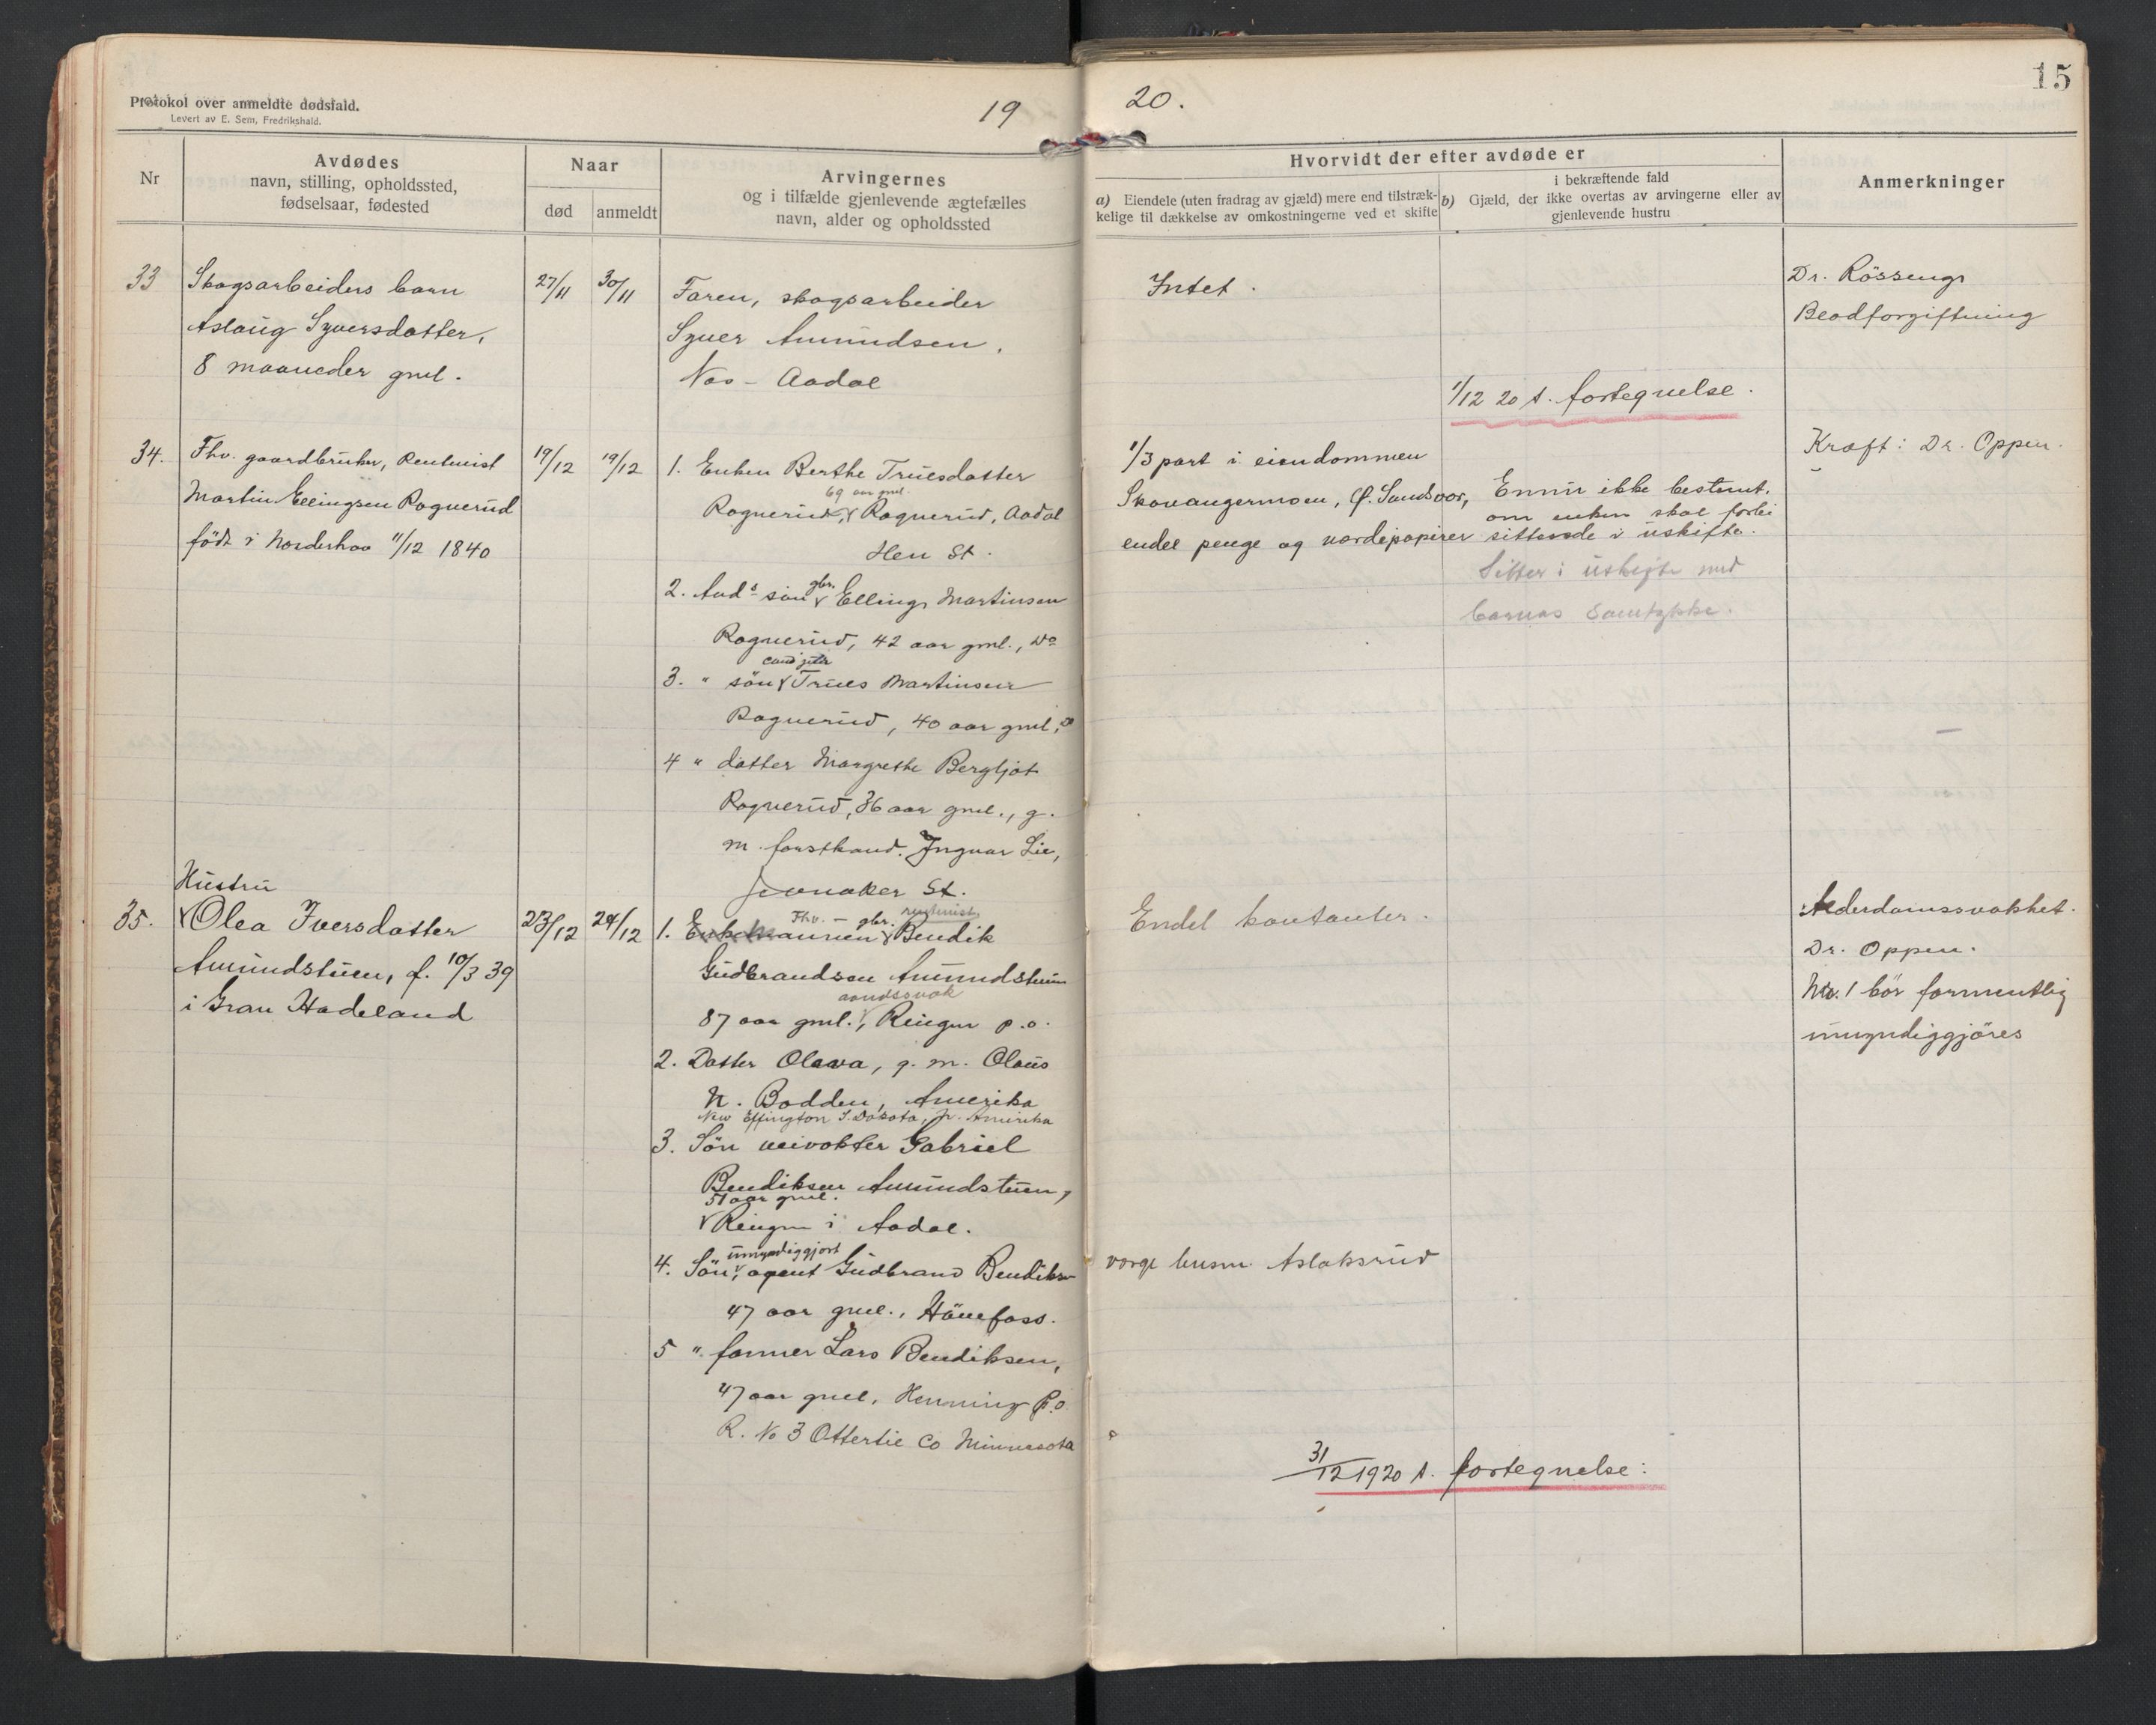 Protokol over anmeldte dødsfald.
Levert av E. Sem, Fredrikshald.
19
20.
15
Nr
Avdødes
navn, stilling, opholdssted,
fødselsaar, fødested
Naar
død
anmeldt
Arvingernes
og i tilfælde gjenlevende ægtefælles
navn, alder og opholdssted
Hvorvidt der efter avdøde er
a) Eiendele (uten fradrag av gjæld) mere end tilstræk-
kelige til dækkelse av omkostningerne ved et skifte
i bekræftende fald
b) Gjæld, der ikke overtas av arvingerne eller av
gjenlevende hustru
Anmerkninger
33
Skogsarbeiders barn
Aslaug Syversdatter,
8 maaneder gml.
27/11
30/11
Faren, skogsarbeider
Syver Amundsen,
Nes - Aadal
Intet.
Dr. Rösseng
Blodforgiftning
1/12 20 t. fortegnelse.
34.
Fhv. gaardbruker, Rentenist
Martin Ellingsen Rognerud
född i Norderhov 11/12 1840
19/12
19/12
1. Enken Berthe Truesdatter
69 aar gml.
Rognerud, Rognerud, Aadal
Hen St.
2. Avd.s sön gbr. Elling Martinsen
Rognerud, 42 aar gml., Do
cand jur
3. " sön Trues Martinsen
Rognerud, 40 aar gml., Do
4 " datter Margrethe Bergljot
Rognerud, 36 aar gml., g.
m. forstkand. Ingvar Lie,
Jevnaker St.
1/3 part i eiendommen
Skovangermoen, p. Sandvor,
endel penge og værdipapirer
Ennu ikke bestemt,
om enken skal forbli
sittende i uskifte.
Sitter i uskifte med
barnas samtykke.
Kræft: Dr. Oppen.
35.
Hustru
Olea Iversdatter
Amundstuen, f. 10/3 39
i Gran Hadeland
23/12
24/12
Fhv. - gbr. rentenist
1. Enkemannen Bendik
Gudbrandsen Amundstuen
aandssvak
87 aar gml., Ringen p.o.
2. Datter Olava, g. m. Olaus
N. Bodden, Amerika
New Effington S. Dakota, N. Amerika
3. Sön veivokter Gabriel
Bendiksen Amundstuen,
51 aar gml.
Ringen i Aadal.
umyndiggjort
4. Sön, agent Gudbrand Bendiksen
47 aar gml., Hönefoss.
5 " farmer Lars Bendiksen,
47 aar gml, Henning P.o.
R. No 3 Ottertie Co Minnesota
Endel kontanter.
Alderdomssvakhet.
Dr. Oppen.
No. 1 bör formentlig
umyndiggjöres
verge lensm. Aslaksrud
31/12 1920 t. fortegnelse: